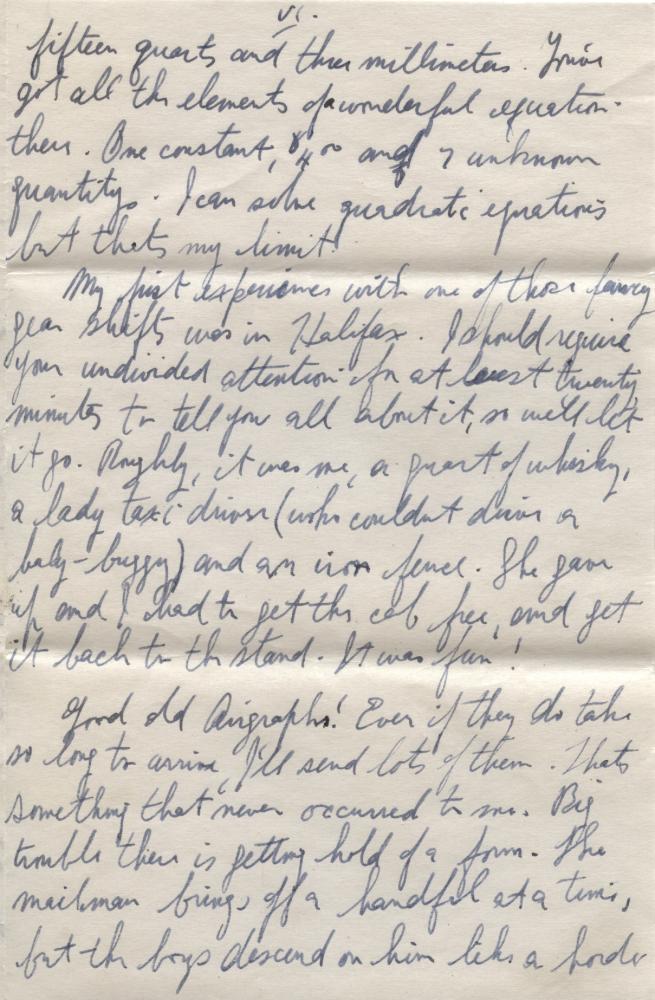 VI.
fifteen quarts and three millimeters. You've
got all the elements of a wonderful equation
there. One constant, and 7 unknown
quantitys. I can solve quadratic equations
but thats my limit.
My first experiences with one of those fancy
gear shifts was in Halifax. I should require
your undivided attention for at least twenty
minutes to tell you all about it, so we'll let
it go. Roughly, it was me, a quart of whisky,
a lady taxi driver (who couldn't drive a
baby-buggy) and an iron fence. She gave
up and I had to get the cab free, and get
it back to the stand. It was fun!
Good old Airgraphs! Even if they do take
so long to arrive, I'll send lots of them. Thats
something that never occurred to me. Big
trouble there is getting hold of a form. The
mailman brings off a handful at a time,
but the boys descend on him like a horde